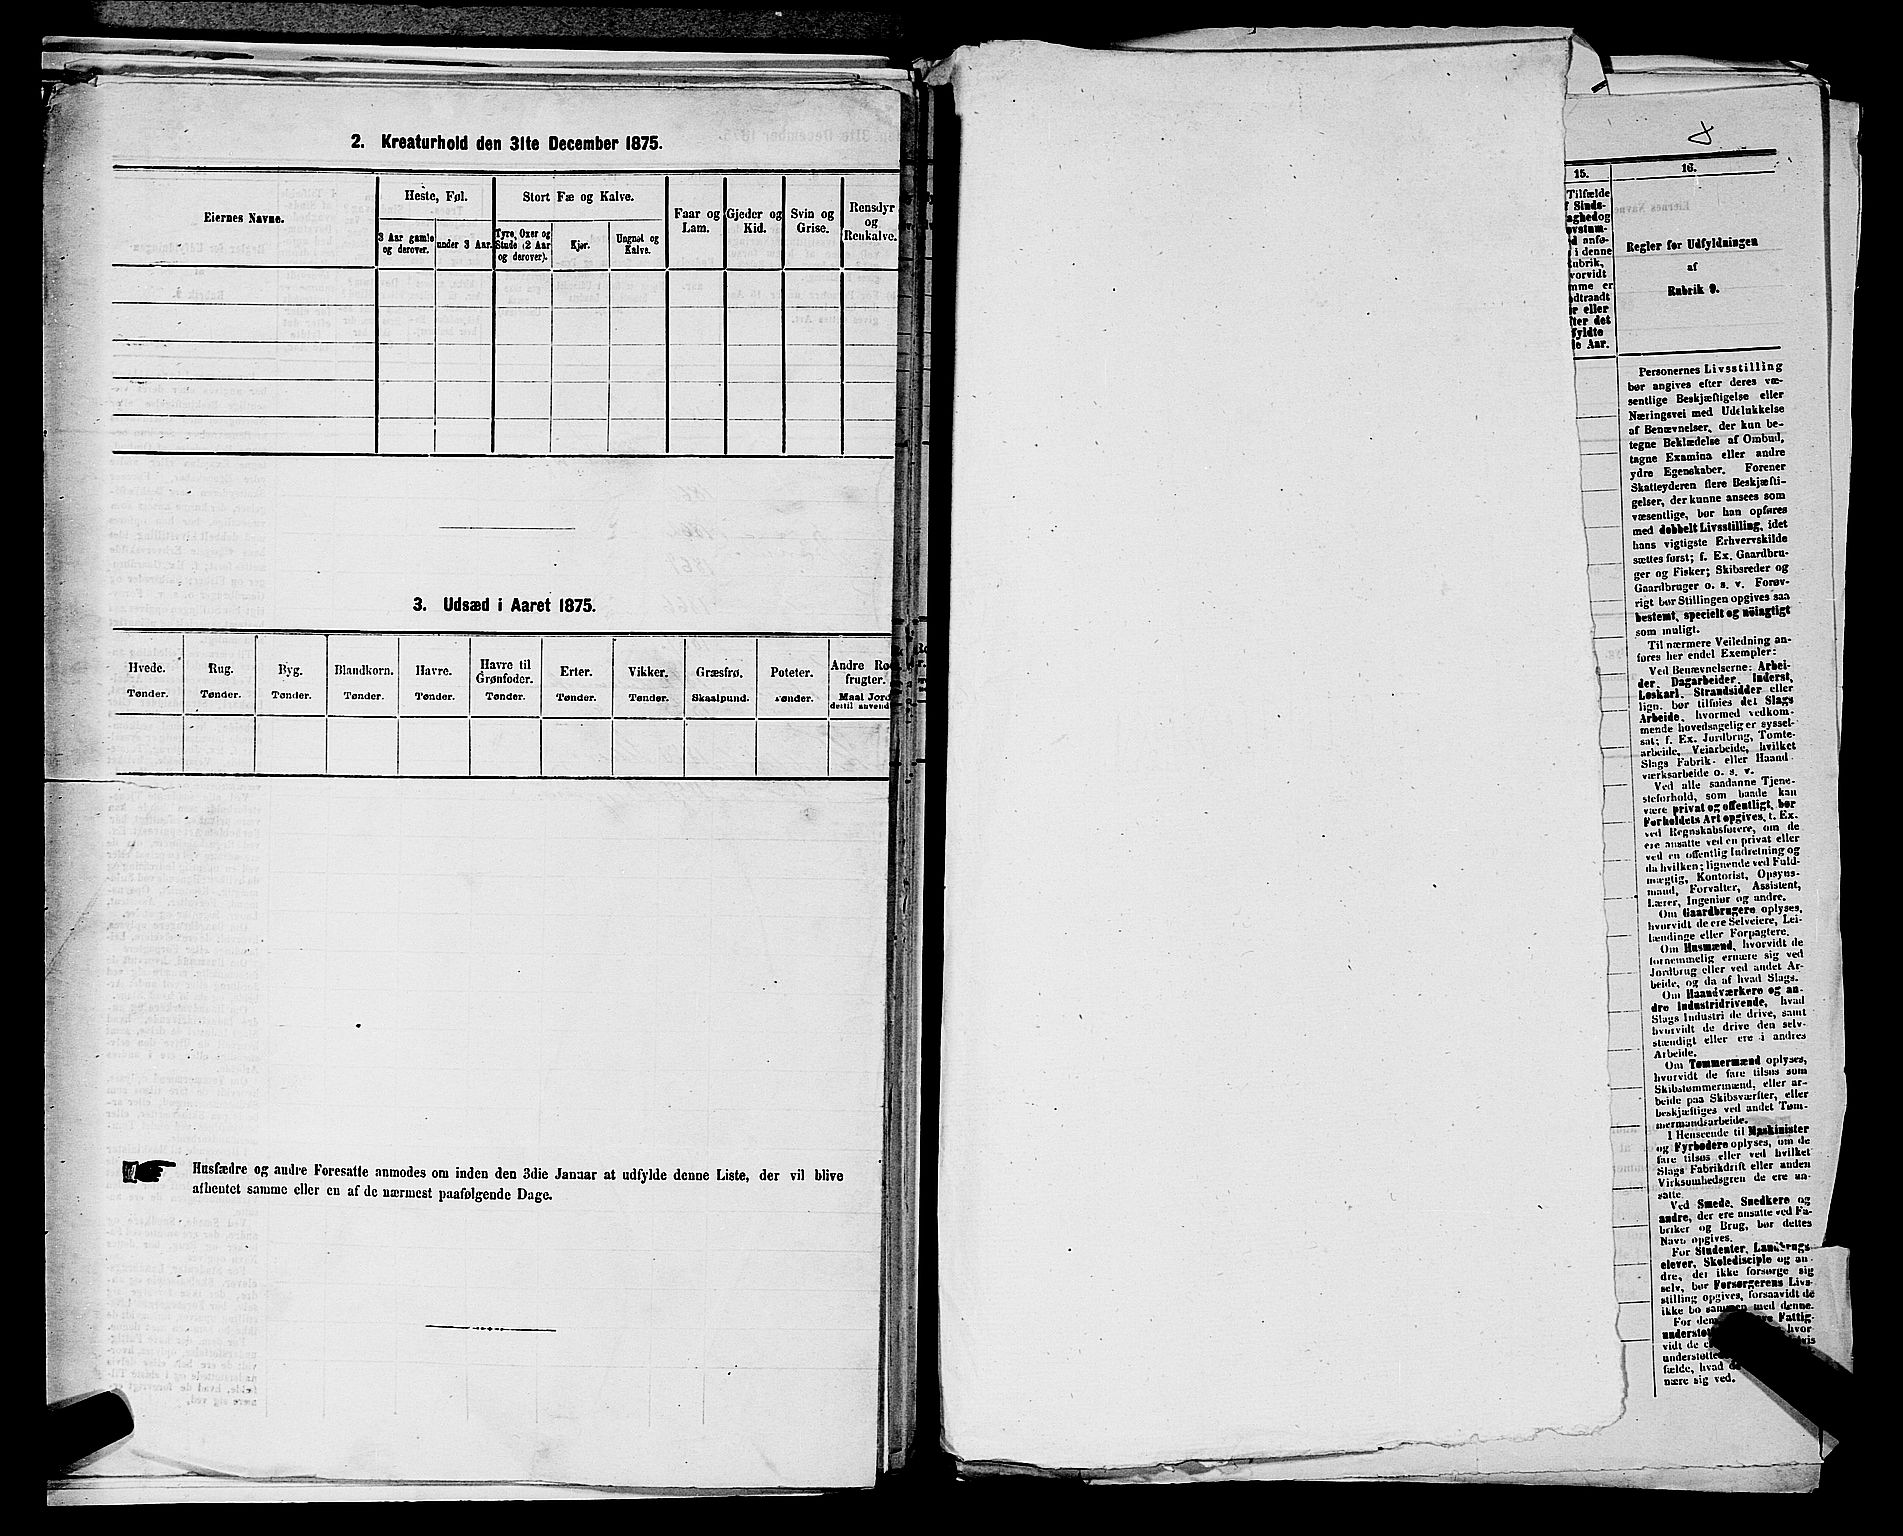 2. Kreaturhold den 31te December 1875.
Eiernes Navne.
Heste, Føl.
3 Aar gamle og derover.
under 3 Aar.
Stort Fæ og Kalve.
Tyre, Oxer og Stude (2 Aar og derover).
Kjør.
Ungnøt og Kalve.
Faar og Lam.
Gjeder og Kid.
Svin og Grise.
Rensdyr og Renkalve.
3. Udsæd i Aaret 1875.
Hvede. Tønder.
Rug. Tønder.
Byg. Tønder.
Blandkorn. Tønder.
Havre. Tønder.
Havre til Grønfoder. Tønder.
Erter. Tønder.
Vikker. Tønder.
Græsfrø. Skaalpund.
Poteter. Tønder.
Andre Ro
frugter.
Maal Jord
dertil anvend
Husfædre og andre Foresatte anmodes om inden den 3die Januar at udfylde denne Liste, der vil blive
afhentet samme eller en af de nærmest paafølgende Dage.
15.
Tilfælde
f Sinds-
aghedog
ovstum-
d anfø-
i denne
ubrik,
vorvidt
mme er
dtraadt
r eller
fter det
fyldte
e Aar.
16.
Regler før Udfyldningen
af
Rubrik 9.
Personernes Livsstilling
bør angives efter deres væ-
sentlige Beskjæftigelse eller
Næringsvei med Udelukkelse
af Benævnelser, der kun be-
tegne Beklædelse af Ombud,
tagne Examina eller andre
ydre Egenskaber. Forener
Skatteyderen flere Beskjæfti-
gelser, der kunne ansees som
væsentlige, bør han opføres
med dobbelt Livsstilling, idet
hans vigtigste Erhvervskilde
sættes først; f. Ex. Gaardbru-
ger og Fisker; Skibsreder og
Gaardbruger o. s. v. Forøv-
rigt bør Stillingen opgives saa
bestemt, specielt og nöiagtigt
som muligt.
Til nærmere Veiledning an-
føres her endel Exempler:
Ved Benævnelserne: Arbei-
der, Dagarbeider, Inderst,
Løskarl, Strandsidder eller
lign. bør tilføies det Slags
Arbeide, hvormed vedkom-
mende hovedsagelig er syssel-
sat; f. Ex. Jordbrug, Tomte-
arbeide, Veiarbeide, hvilket
Slags Fabrik- eller Haand
værksarbeide o. s. v.
Ved alle saadanne Tjene-
steforhold, som baade kan
være privat og offentligt, bør
Forholdets Art opgives, t. Ex.
ved Regnskabsførere, om de
ere ansatte ved en privat eller
ved en offentlig Indretning og
da hvilken; lignende ved Fuld-
mægtig, Kontorist, Opsyns-
mand, Forvalter, Assistent,
Lærer, Ingeniør og andre.
Om Gaardbrugere oplyses,
hvorvidt de ere Selveiere, Lei-
lændinge eller Forpagtere.
Om Husmænd, hvorvidt de
fornemmelig ernære sig ved
Jordbrug eller ved andet Ar-
beide, og da af hvad Slags.
Om Haandværkere og an-
dre Industridrivende, hvad
Slags Industri de drive, samt
hvorvidt de drive den selv-
stændigt eller ere i andres
Arbeide.
Om Tømmermænd oplyses,
hvorvidt de fare tilsøs som
Skibstømmermænd, eller ar-
beide paa Skibsværfter, eller
beskjæftiges ved andet Tøm-
mermandsarbeide.
I Henseende til Maskinister
og Fyrbødere oplyses, om de
fare tilsøs eller ved hvilket
Slags Fabrikdrift eller anden
Virksomhedsgren de ere an-
satte.
Ved Smede, Snedkere og
andre, der ere ansatte ved Fa-
briker og Brug, bør dettes
Navn opgives.
For Studenter, Landbrugs-
elever, Skoledisciple og an-
dre, der ikke forsørge sig
selv, bør Forsørgerens Livs-
stilling opgives, forsaavidt de
ikke bo sammen med denne.
For dem Fattig-
understøt hvor-
vidt de
understøtte
fælde, hvad
nære sig ved.